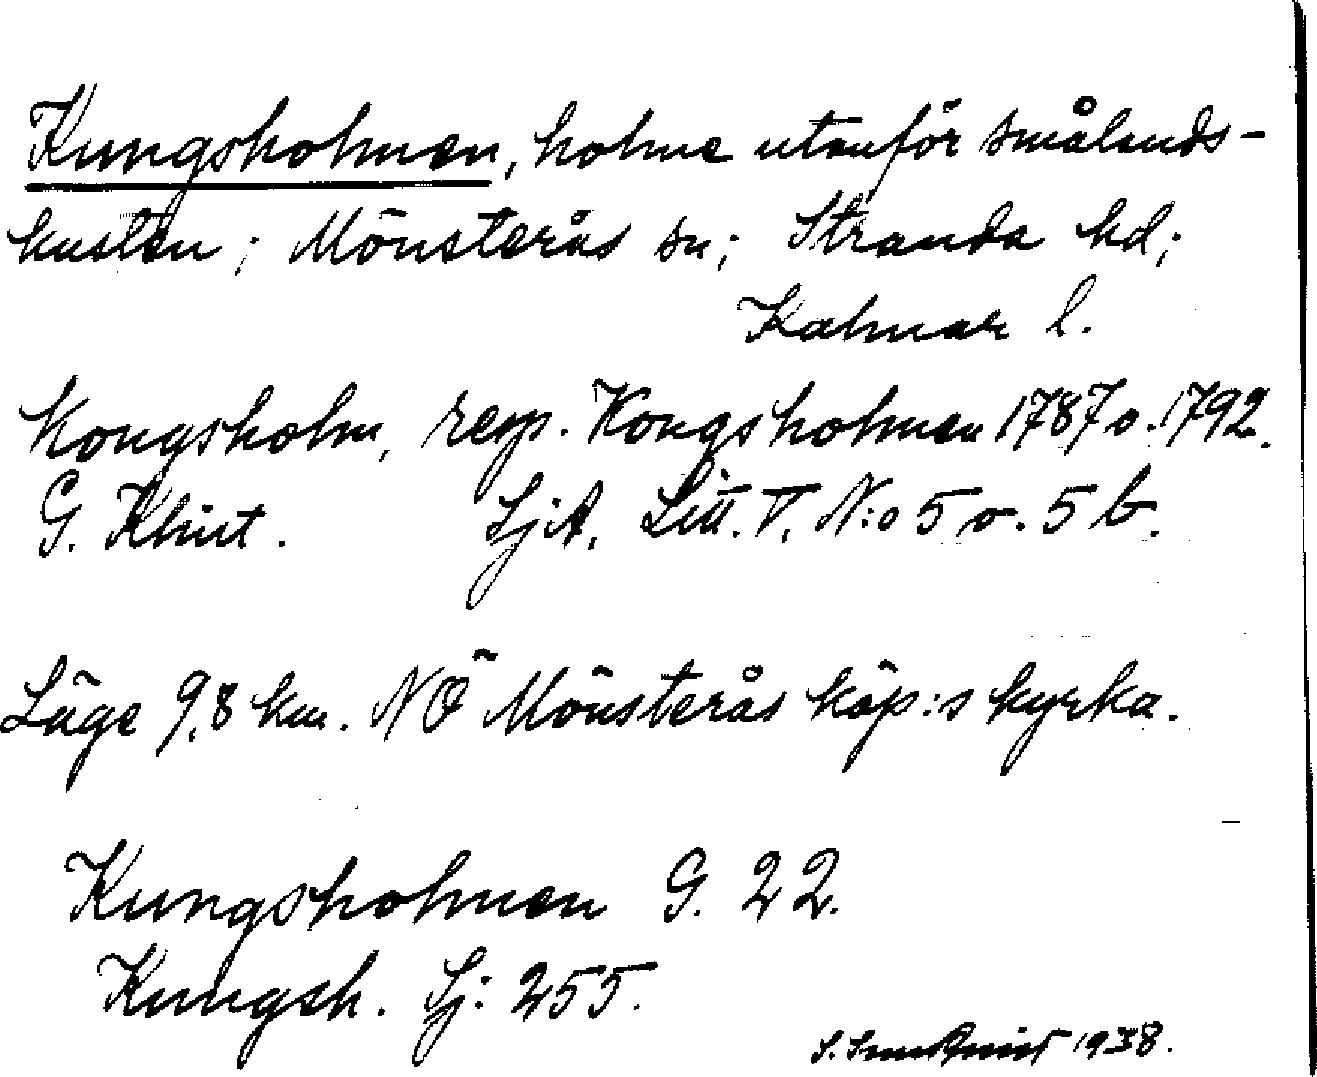 Kungsholmen, holme utanför smålands-
kusten; Mönsterås sn; Stranda hd;
Kalmar l.
Kongsholm, resp. Kongsholmen 1787 o. 1792.
G. Klint. SjA, Litt. T, N:o 5 o. 5 b.
Läge 9,8 km. NÖ Mönsterås köp:s kyrka.
Kungsholmen G. 22.
Kungsh. Sj: 255.
S. 1938.